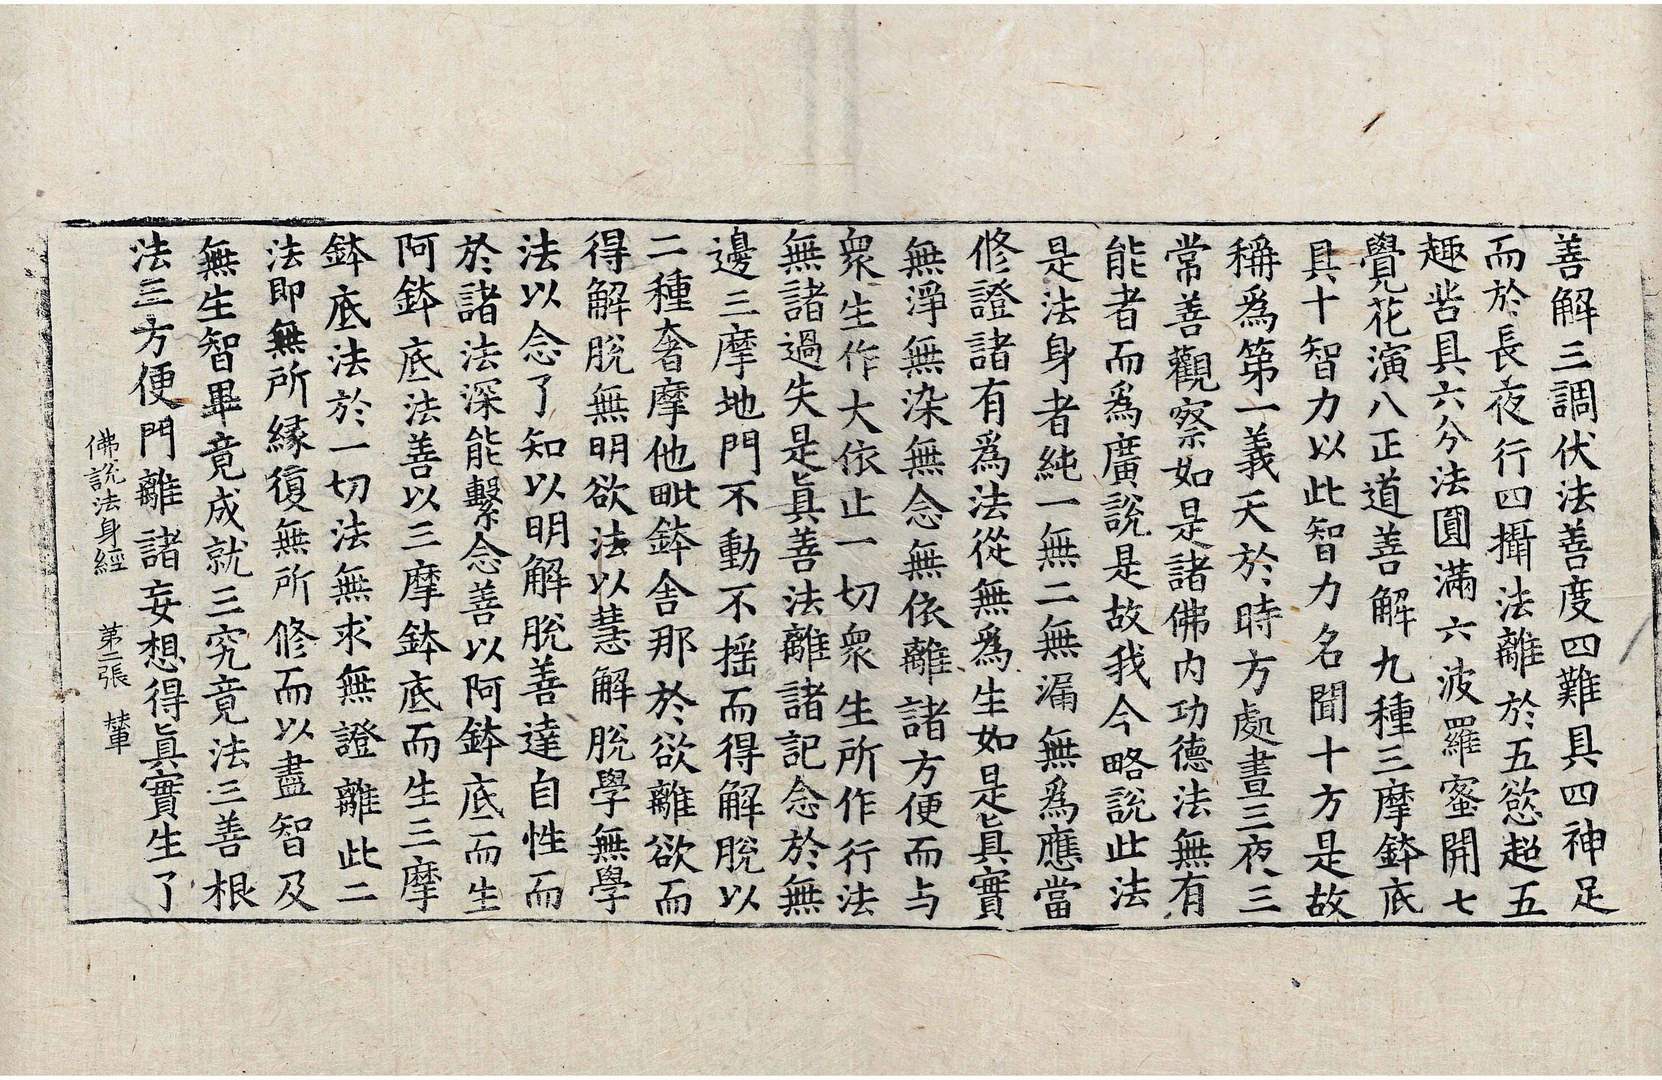 善解三調伏法善度四難具四神足
而於長夜行四攝法離於五慾超五
趣甞具六分法圓滿六波羅蜜開七
覺花演八正道善解九種三摩鉢底
具十智力以此智力名聞十方是故
稱爲第一義天於時方處晝三夜三
常善觀察如是諸佛内功德法無有
能者而爲廣說是故我今略說此法
是法身者純一無二無漏無爲應當
修證諸有爲法從無爲生如是眞實
無淨無染無念無依離諸方便而与
衆生作大依止一切衆生所作行法
無諸過失是眞善法離諸記念於無
邊三摩地門不動不搖而得解脫以
二種奢摩他毗鉢舍那於欲離欲而
得解脫無明欲法以慧解脫學無學
法以念了知以明解脫善達自性而
於諸法深能繫念善以阿鉢底而生
阿鉢底法善以三摩鉢底而生三摩
鉢底法於一切法無求無證離此二
法即無所緣復無所修而以盡智及
無生智畢竟成就三究竟法三善根
法三方便門離諸妄想得眞實生了
佛說法身經 第二張 輦